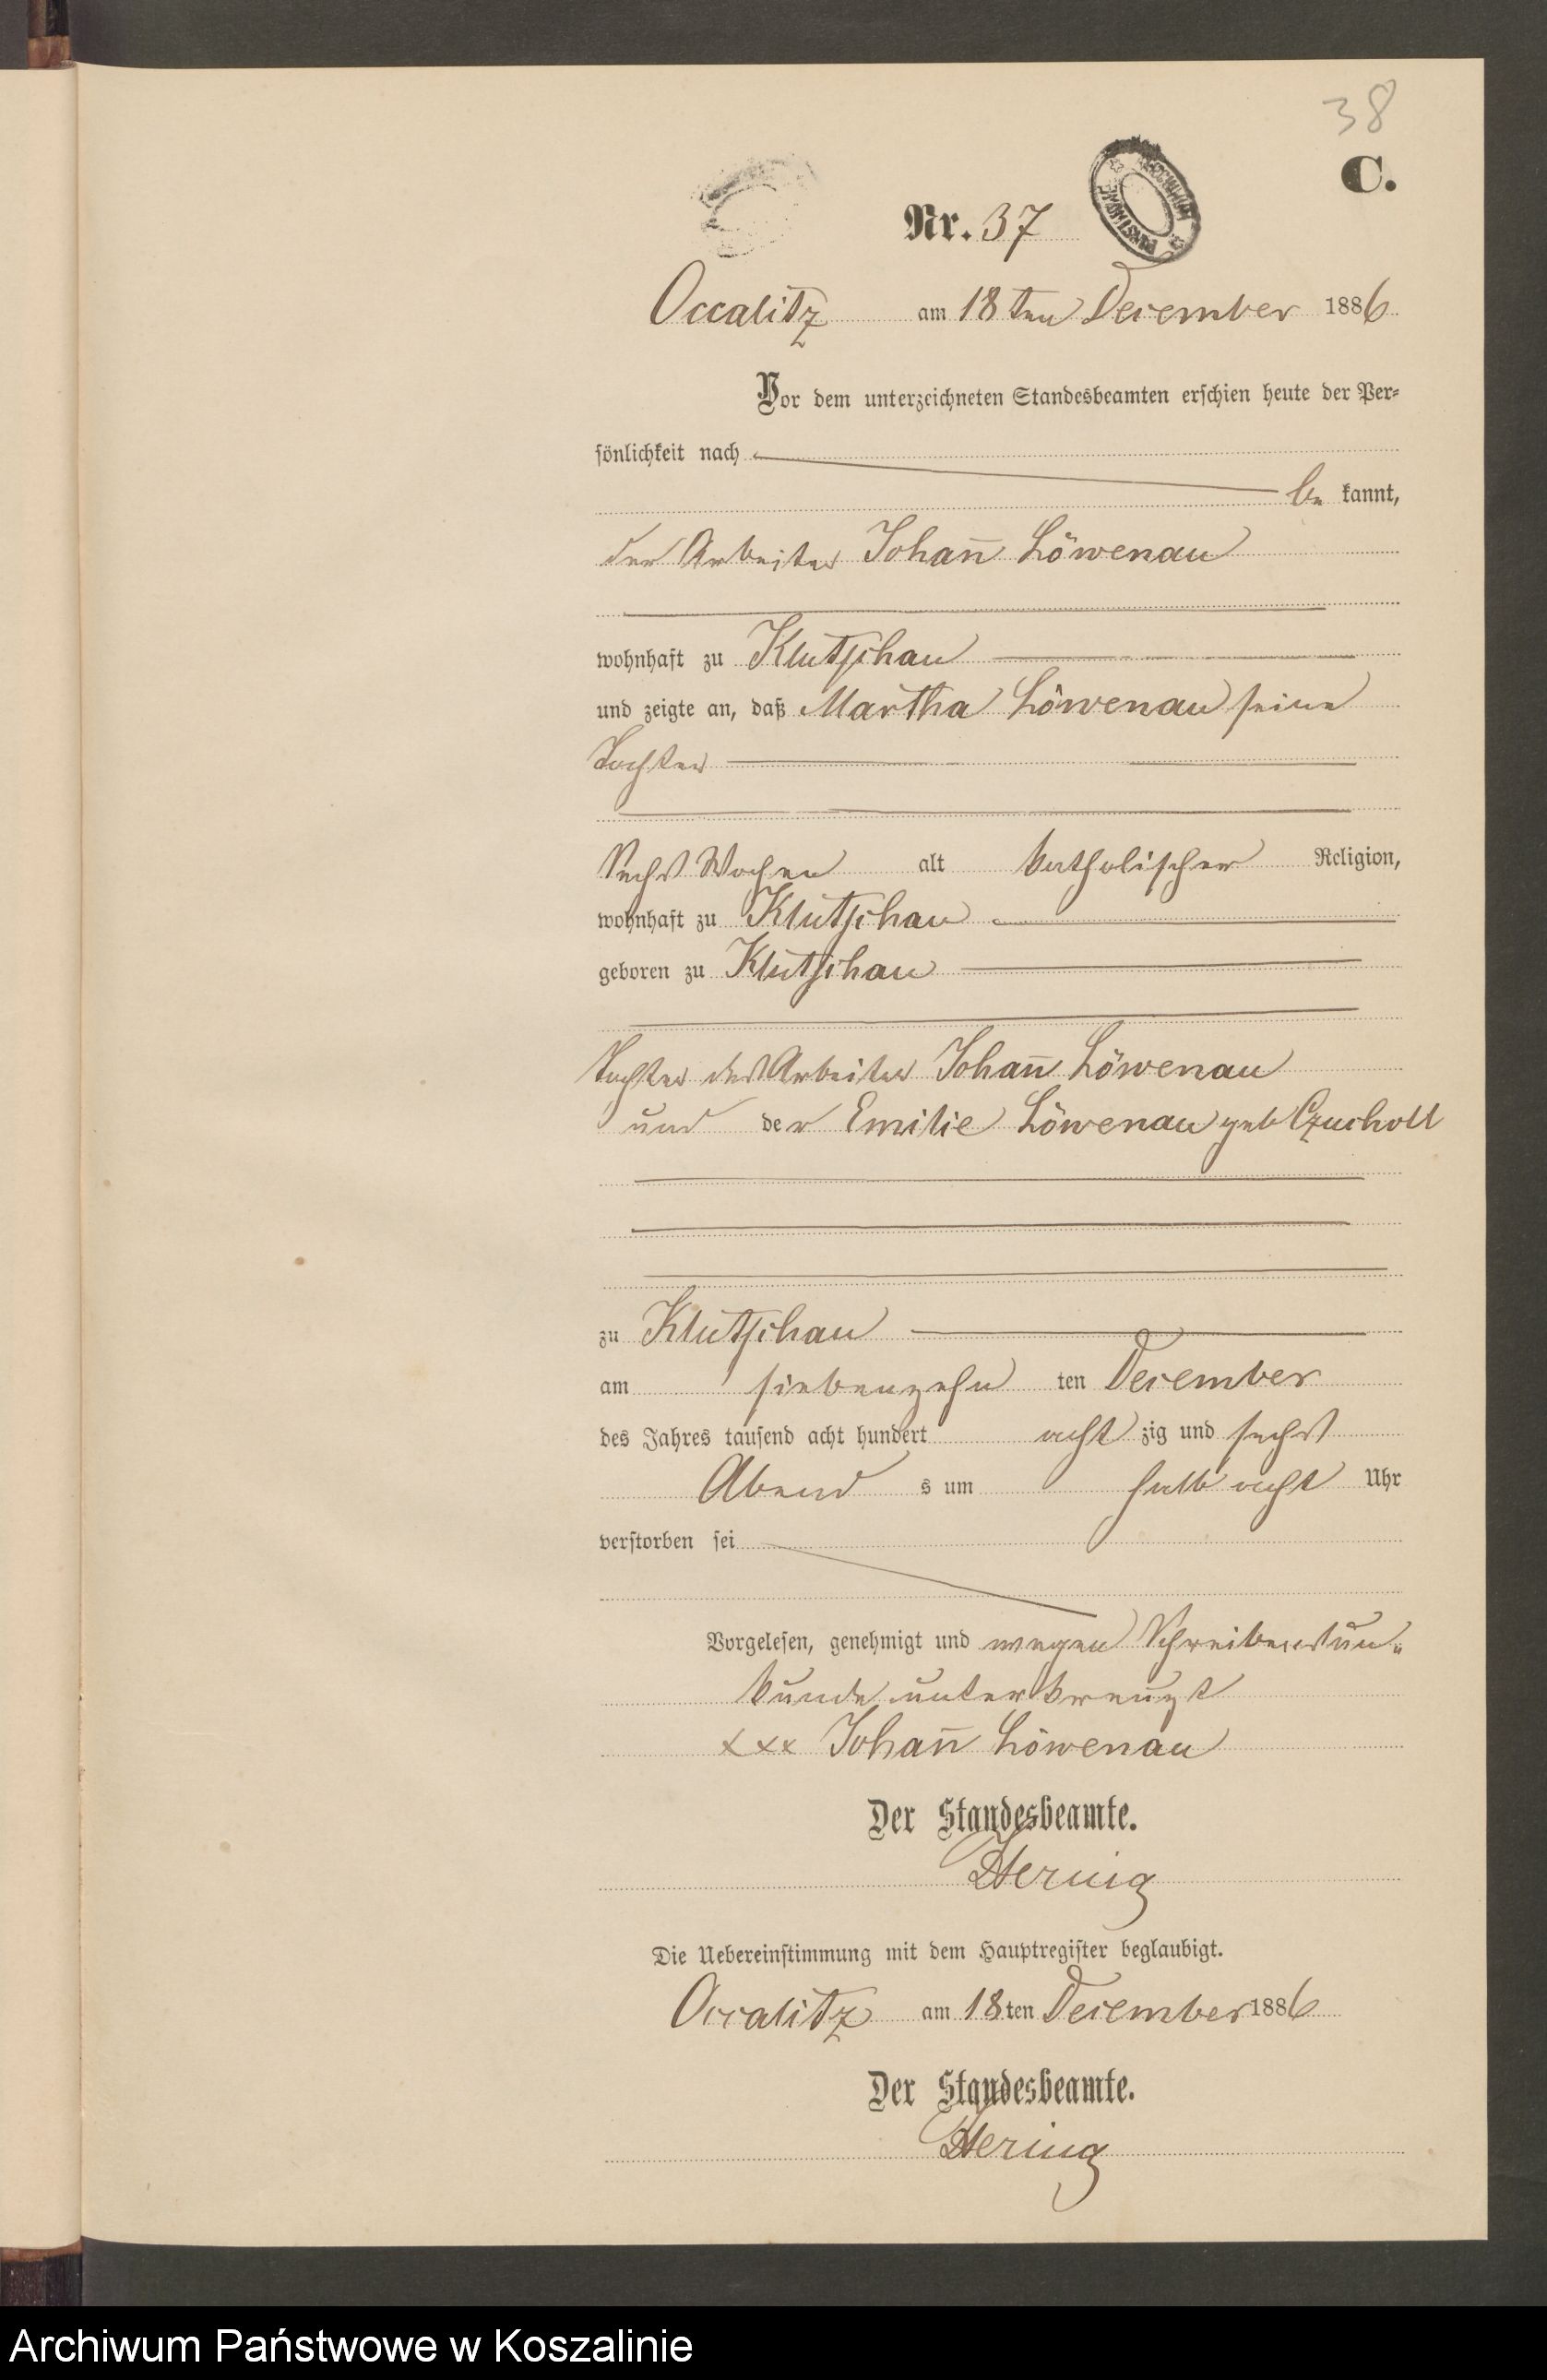 38
C.
Nr. 37
Occalitz am 18ten December 1886
Vor dem unterzeichneten Standesbeamten erschien heute der Per-
sönlichkeit nach
be kannt,
der Arbeiter Johan̅ Löwenau
wohnhaft zu Klutschau
und zeigte an, daß Martha Löwenau seine
Tochter
Sechs Wochen alt katholischer Religion,
wohnhaft zu Klutschau
geboren zu Klutschau
Tochter des Arbeiter Johan̅ Löwenau
und der Emilie Löwenau geb Czucholl
zu Klutschau
am siebenzehn ten December
des Jahres tausend acht hundert acht zig und sechs
Abend s um halb acht Uhr
verstorben sei
Vorgelesen, genehmigt und wegen Schreibensun-
kunde unterkreuzt
xxx Johan̅ Löwenau
Der Standesbeamte.
Hering
Die Uebereinstimmung mit dem Hauptregister beglaubigt.
Occalitz am 18ten December 1886
Der Standesbeamte.
Hering
Archiwum Państwowe w Koszalinie